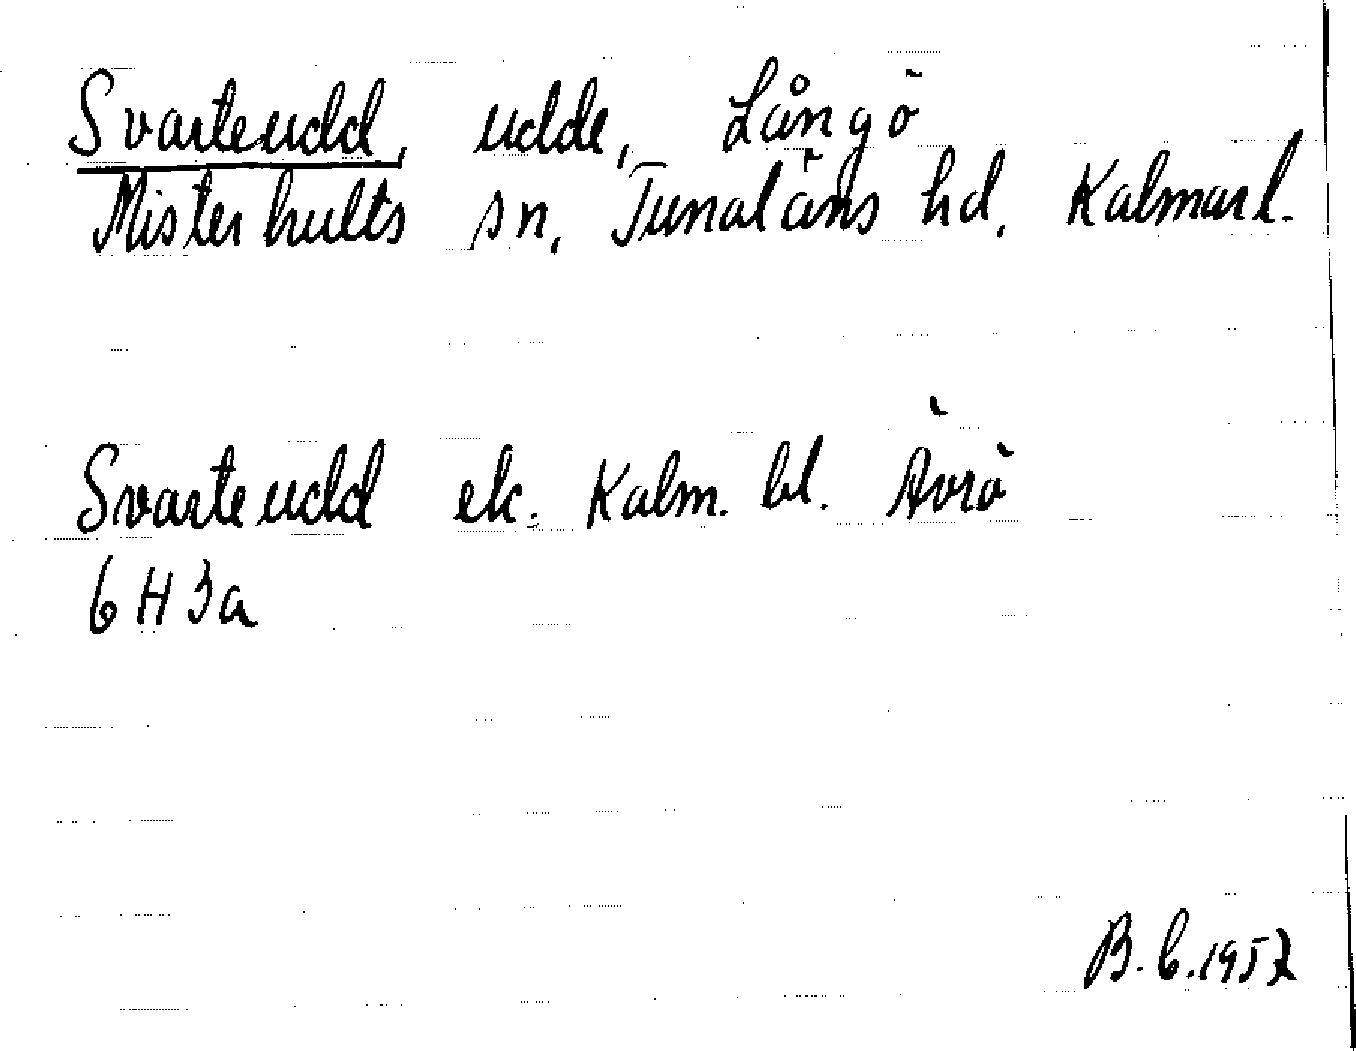 Svarteudd, udde, Långö
Misterhults sn, Tunaläns hd, Kalmar l.
Svarteudd ek. Kalm. bl. Ävrö
6 H 3a
B. b. 1957